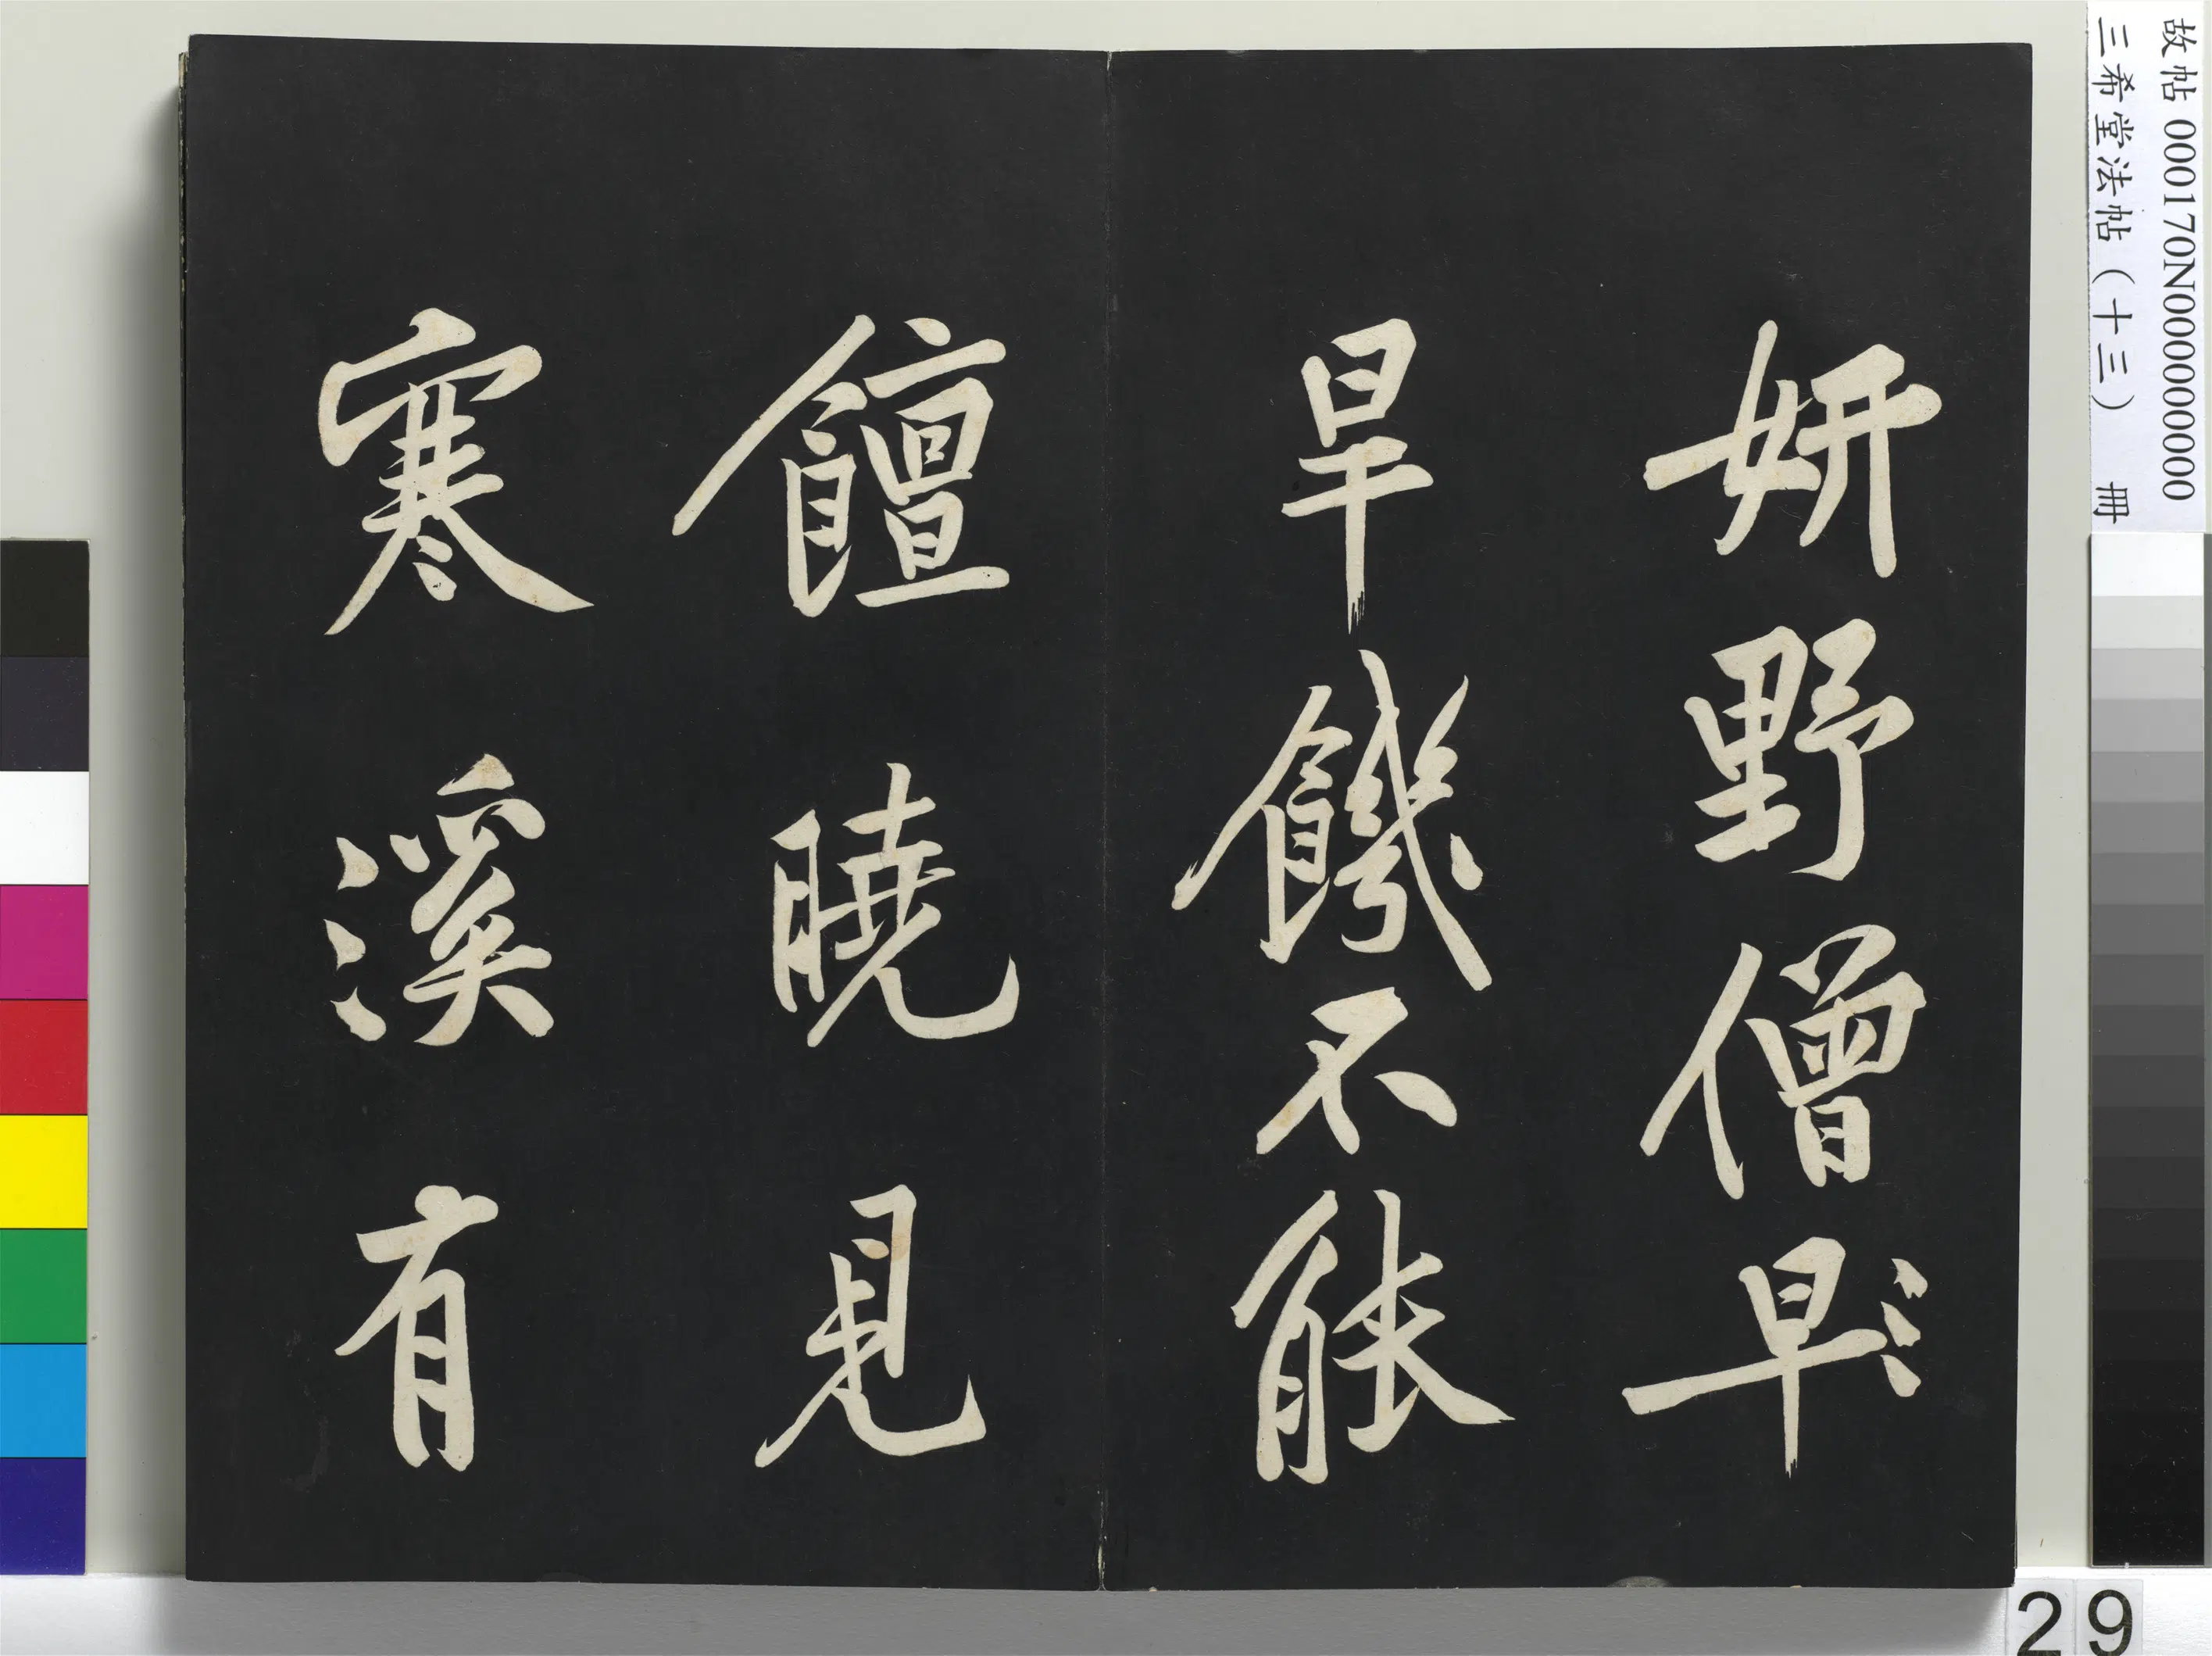 妍野僧早
旱饑不能
饘曉見
寒溪有
故帖 000170N000000000
三希堂法帖（十三） 冊
29